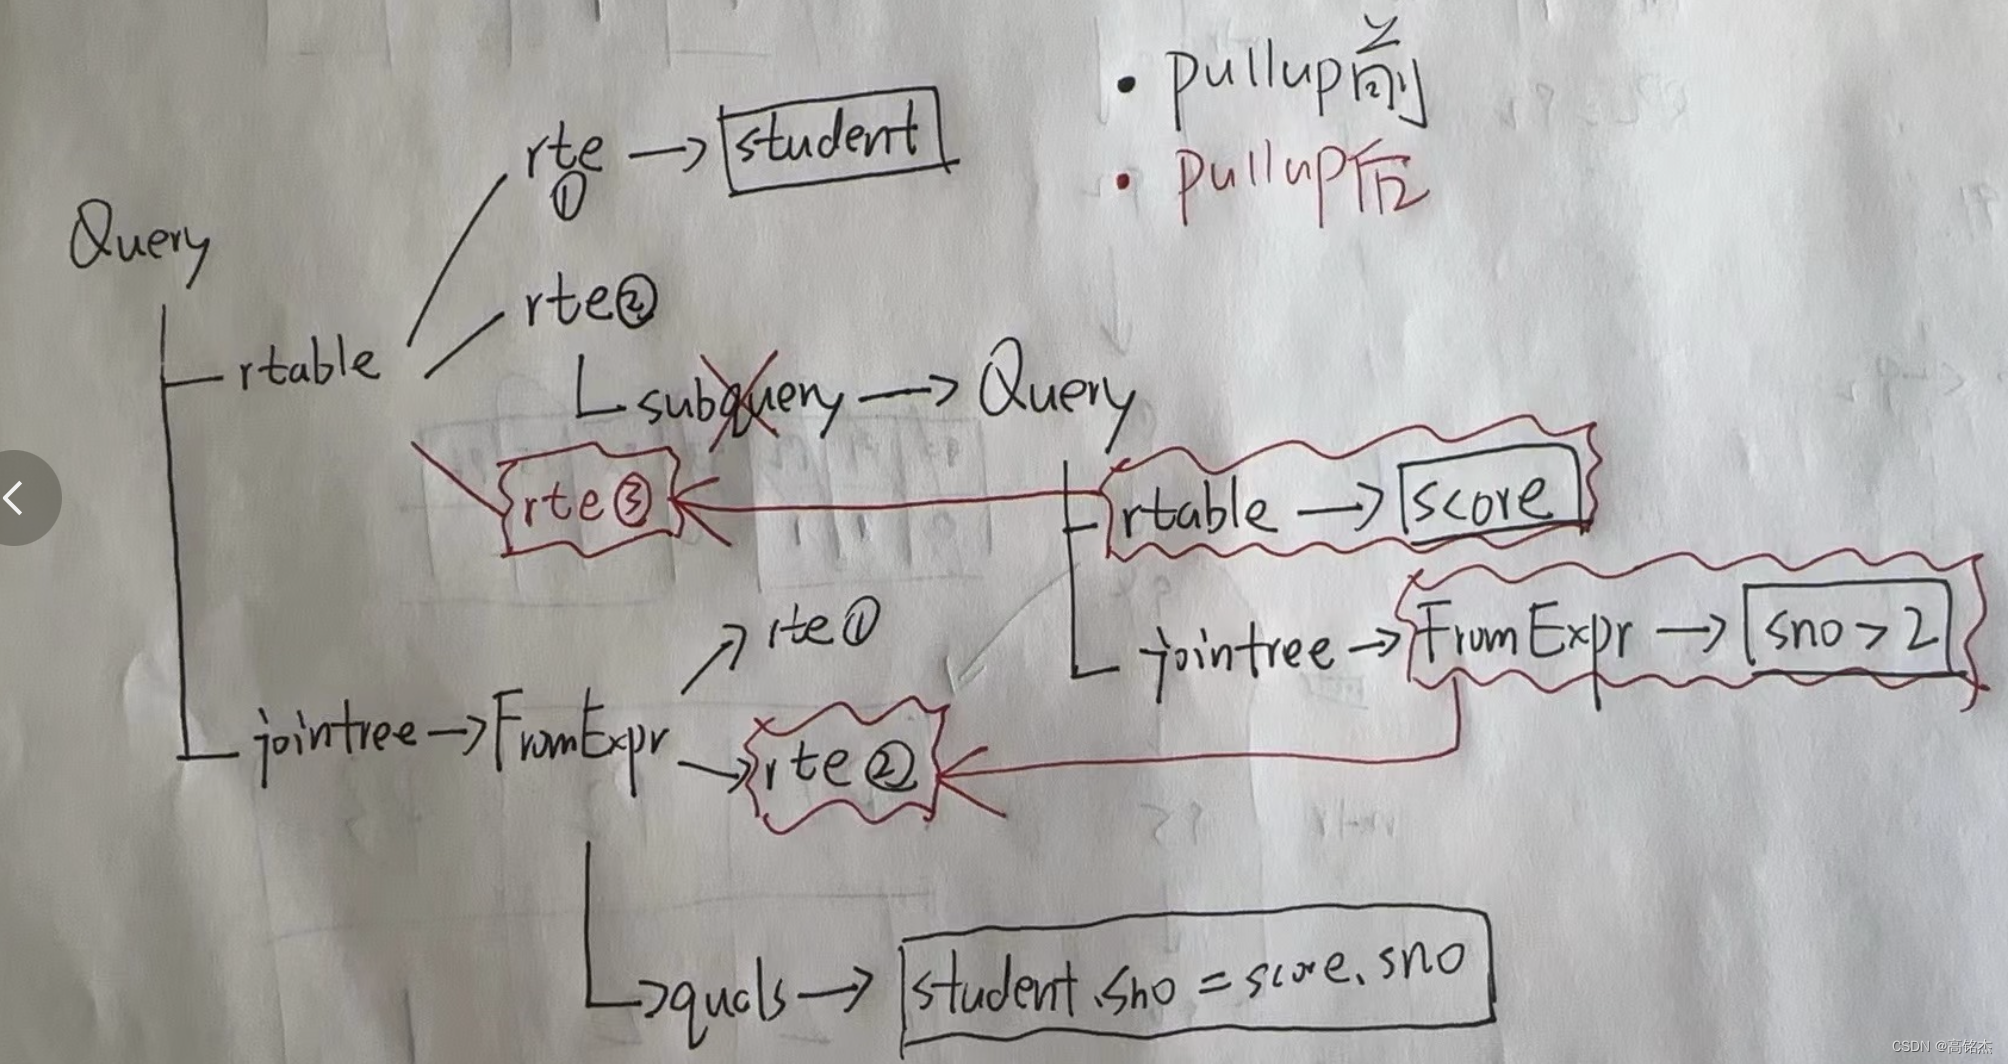 • pullup前
• pullup后
rte → student
①
Query
rte②
rtable
subquery → Query
rte③
rtable → score
rte①
jointree → FromExpr → sno > 2
jointree → FromExpr
rte②
quals → student.sno = score.sno
CSDN @高铭杰